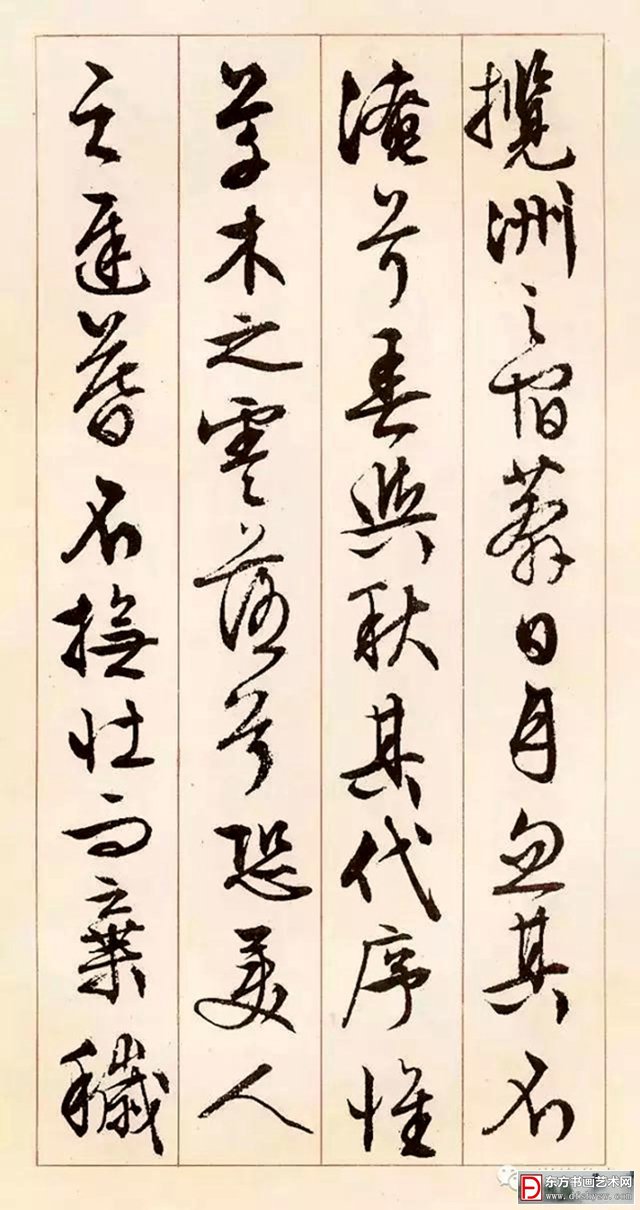 攬洲之宿莽日月忽其不
淹兮春與秋其代序惟
草木之零落兮恐美人
之遲暮不撫壯而棄穢
东方书画艺术网
www.dfshysw.com